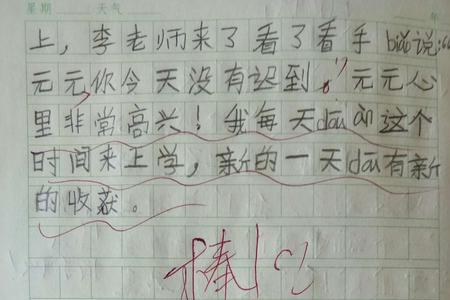 星期 天气 年
上，李老师来了看了看手biǎo说:“
元元,你今天没有迟到。”元元心
里非常高兴！我每天dōu àn这个
时间来上学，新的一天dōu有新
的收获。
棒